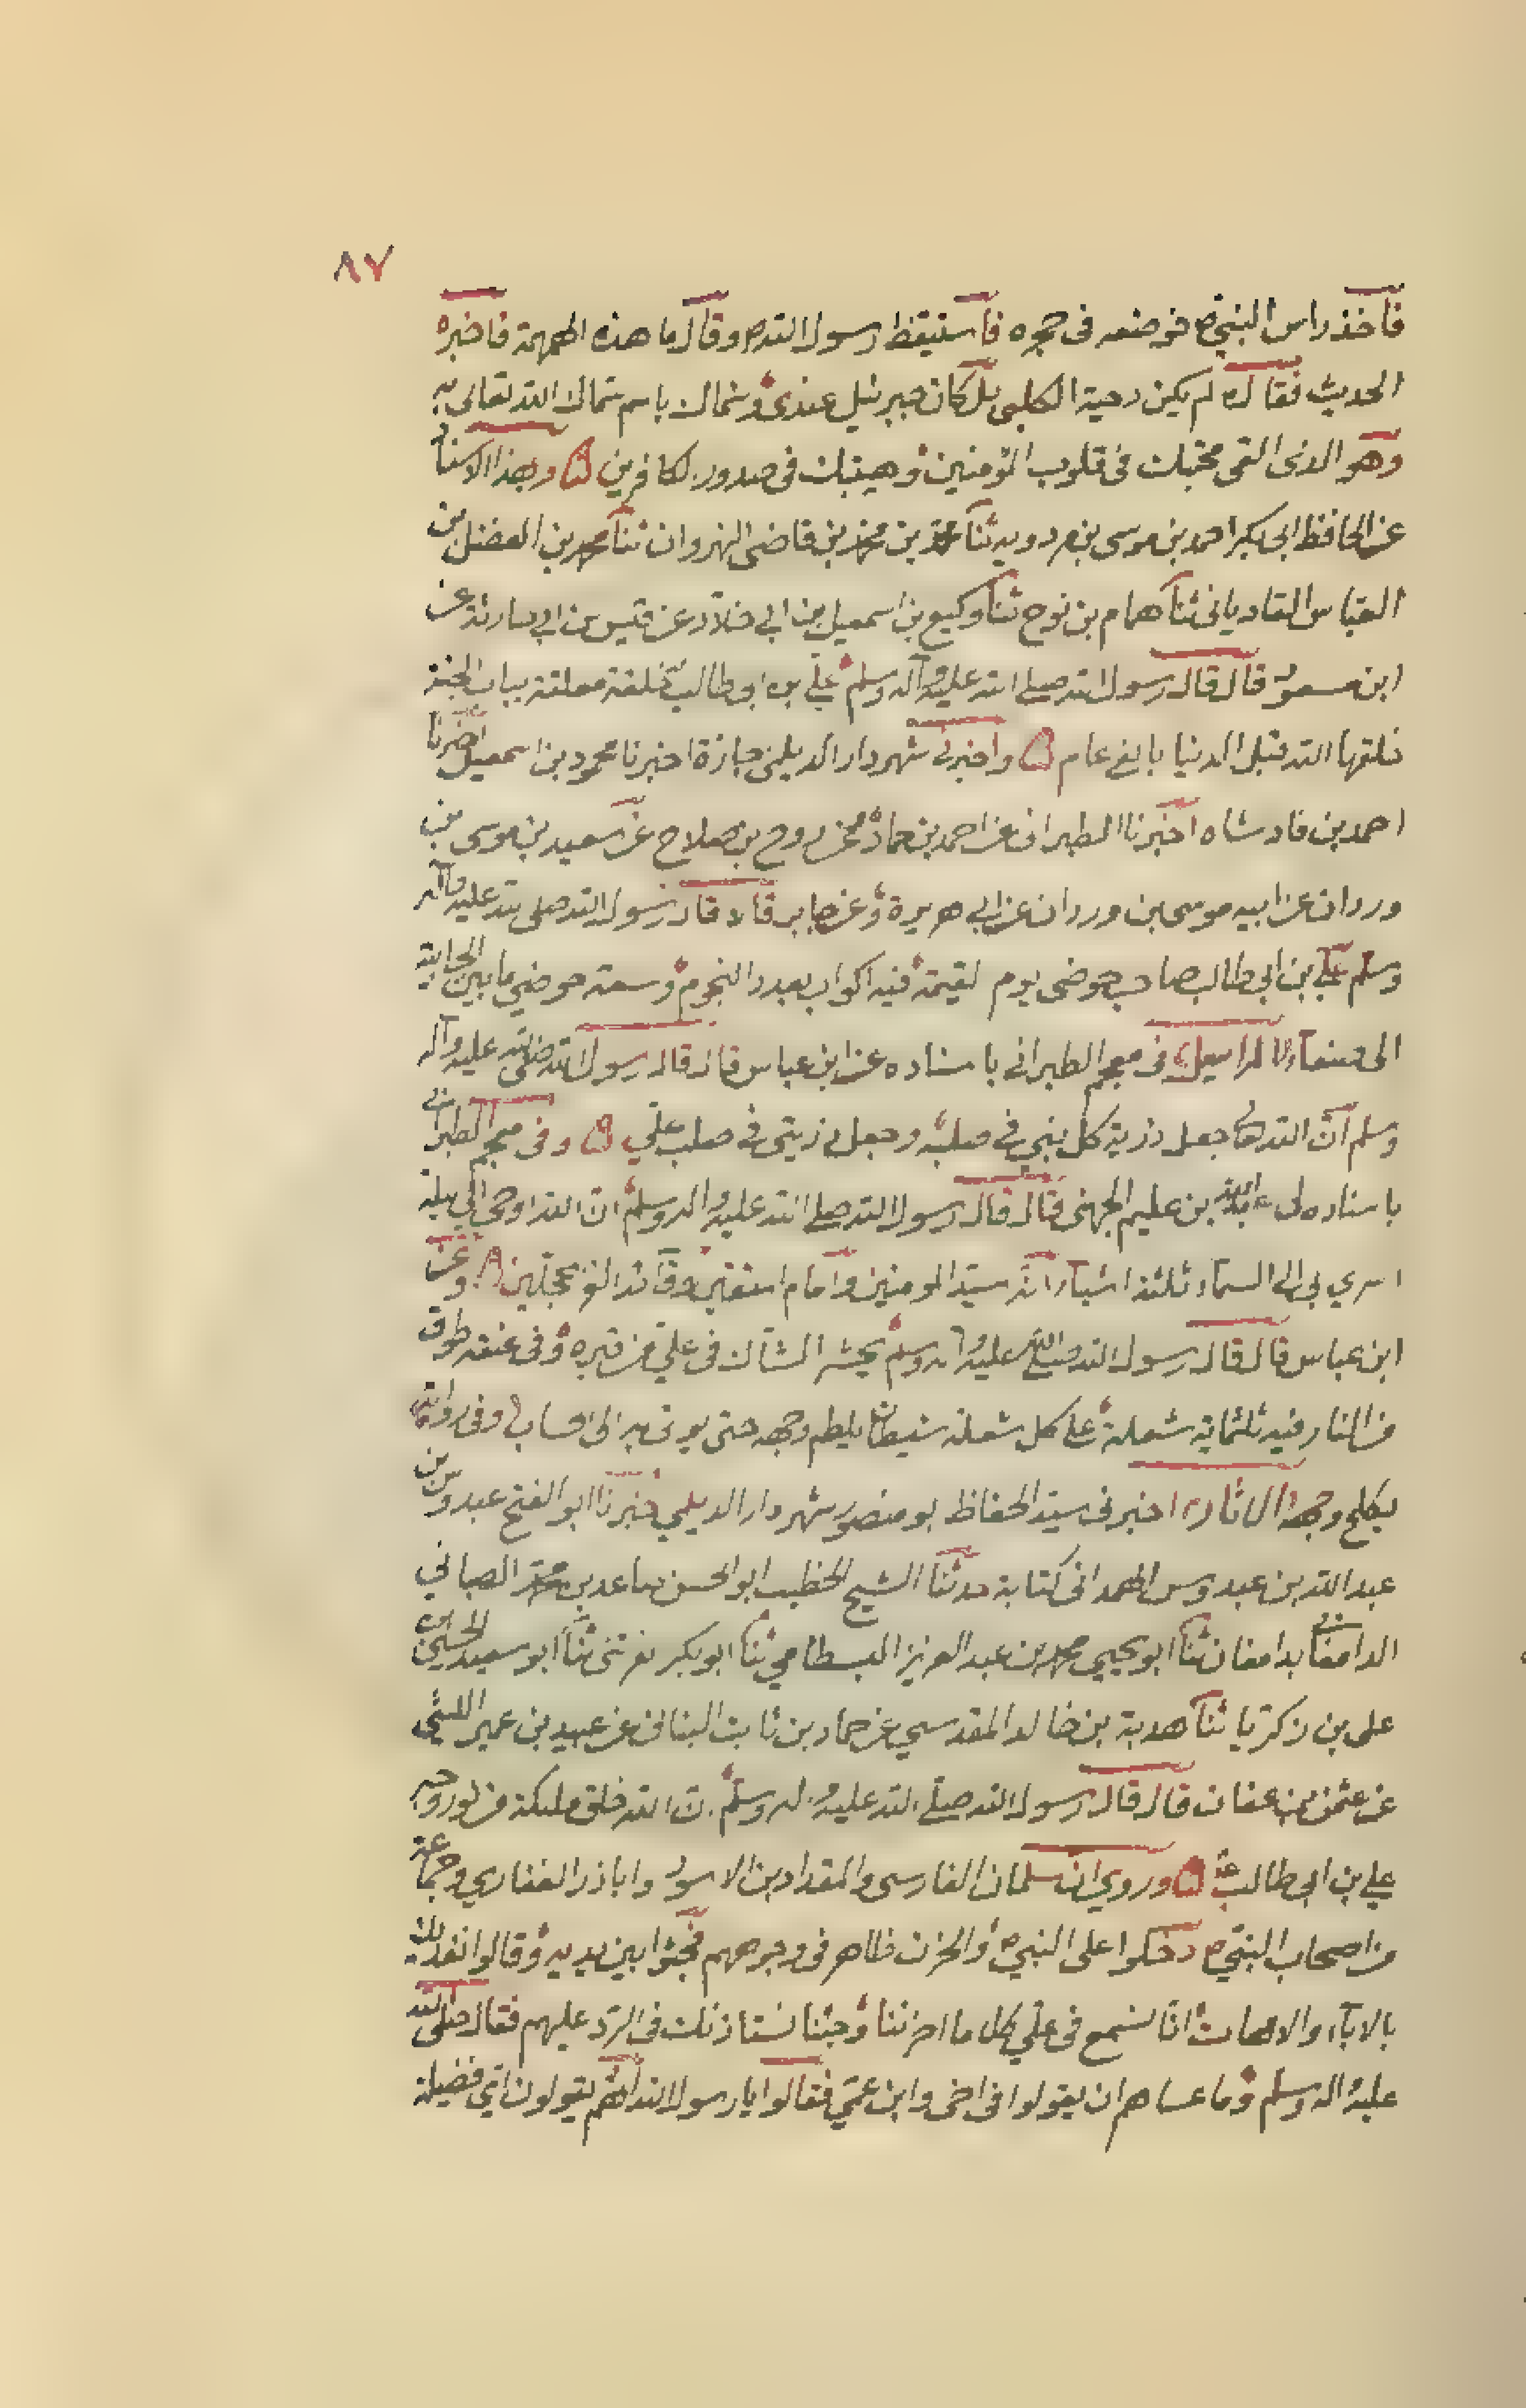 ٨٧
فأخذ راس النبي ص فوضعه في حجره فاستيقظ رسول الله ص وقال ما هذه الهمهمة فاخبره
الحديث فقال ص لم يكن دحية الكلبي بل كان جبرئيل عندي وسماك باسم سماك الله تعالى به
وهو الذي القى محبتك في قلوب المؤمنين وهيبتك في صدور الكافرين وبهذا الاسناد
عن الحافظ ابي بكر احمد بن موسى بن مردويه ثنا محمد بن محمد بن قاضي النهروان ثنا محمد بن الفضل بن
العباس القاديانى ثنا همام بن نوح ثنا وكيع بن اسمعيل بن ابي خلاد عن قيس بن ابي عن
ابن مسعود قال قال رسول الله صلى الله عليه وآله وسلم علي بن ابي طالب حلقة معلقة بباب الجنة
خلقها الله قبل الدنيا بالفي عام واخبرني شهردار الديلمي اجازة اخبرنا محمود بن اسمعيل اخبرنا
احمد بن فادشاه اخبرنا الطبراني عن احمد بن حماد عن روح بن صلاح عن سعيد بن موسى بن
وردان عن ابيه موسى بن وردان عن ابي هريرة وعن جابر قالا قال رسول الله صلى الله عليه وآله
وسلم علي بن ابي طالب صاحب حوضي يوم القيمة فيه اكواب بعدد النجوم وسعة حوضي ما بين الجابية
الى صنعاء في معجم الطبراني باسناده عن ابن عباس قال قال رسول الله صلى الله عليه وآله
وسلم ان الله جعل ذرية كل نبي في صلبه وجعل ذريتي في صلب علي وفي معجم الطبراني
باسناده الى عبد الله بن عليم الجهني قال قال رسول الله صلى الله عليه وآله وسلم ان الله اوحى الي ليلة
اسري بي الى السماء ثلثة اشياء انه سيد المومنين وامام المتقين وقائد الغر المحجلين وعن
ابن عباس قال قال رسول الله صلى الله عليه وآله وسلم يحشر الشاك في علي من قبره وفي عنقه طوق
من النار فيه ثلثماية شعلة على كل شعلة شيطان يلطم وجهه حتى يوقف به الى الحساب وفي رواية
يكلح وجهه اخبرني سيد الحفاظ ابو منصور شهردار الديلمي اخبرنا ابو الفتح عبدوس بن
عبد الله بن عبدوس الهمداني كتابة حدثنا الشيخ الخطيب ابو الحسن صاعد بن محمد
الدامغاني بدامغان ثنا ابو يحيي محمد بن عبد العزيز البسطامي ثنا ابو بكر القرشي ثنا ابو سعيد الحسين بن
علي بن زكريا ثنا هدبة بن خالد المقدسي عن حماد بن ثابت البناني عن عبيد بن عمير الليثي
عن عثمن بن عفان قال قال رسول الله صلى الله عليه وآله وسلم ان الله خلق ملئكة من نور وجه
علي بن ابي طالب وروي ان سلمان الفارسي والمقداد بن الاسود واباذر الغفاري وجماعة
من اصحاب النبي ص دخلوا على النبي ص والحزن ظاهر في وجوههم فجثوا بين يديه وقالوا نفديك
بالاباء والامهات انا لنسمع في علي كل ما احزننا وجئنا نستاذنك في الرد عليهم فقال صلى الله
عليه وآله وسلم وما عساهم ان يقولوا في اخي وابن عمي فقالوا يا رسول الله انهم يقولون اي فضيلة